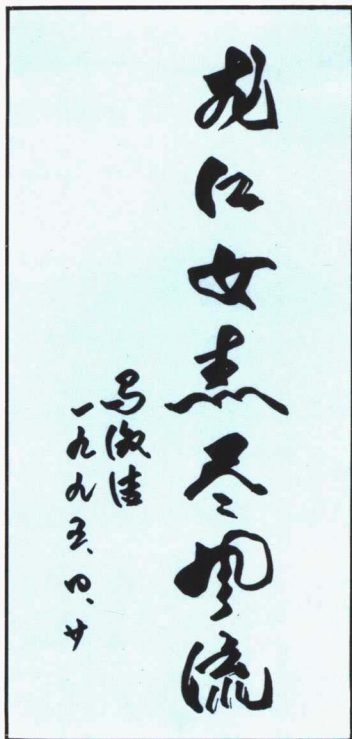 龙江女杰尽风流
马淑洁
一九九五、四、廿